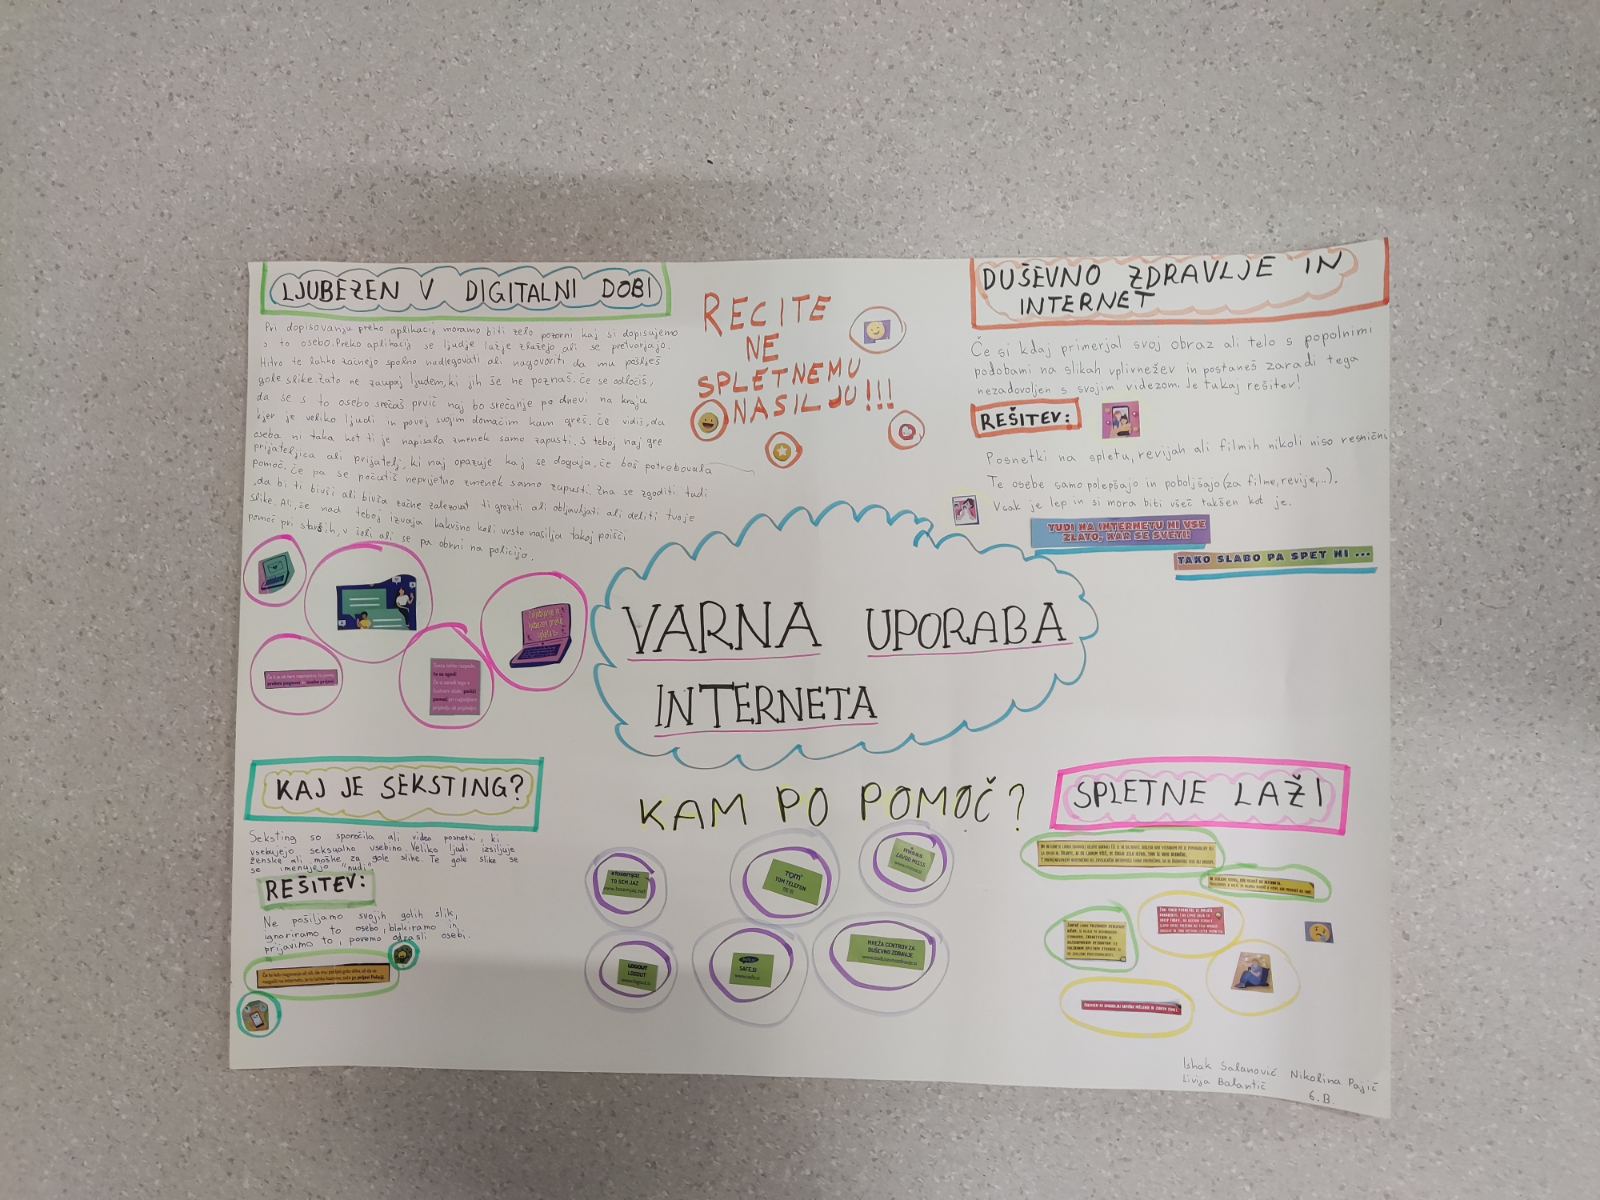 LJUBEZEN V DIGITALNI DOBI
Pri dopisovanju preko aplikacij moramo biti zelo pozorni kaj si dopisujemo
s to osebo. Preko aplikacij se ljudje lažje zlažejo ali se pretvarjajo.
Hitro te lahko začnejo spolno nadlegovati ali nagovoriti da mu pošlješ
gole slike. Zato ne zaupaj ljudem, ki jih še ne poznaš. Če se odločiš,
da se s to osebo srečaš prvič naj bo srečanje po dnevi na kraju
kjer je veliko ljudi in povej svojim domačim kam greš. Če vidiš, da
oseba ni taka kot ti je napisala zmenek samo zapusti. S teboj naj gre
prijateljica ali prijatelj, ki naj opazuje kaj se dogaja, če boš potrebovala
pomoč. Če pa se počutiš neprijetno zmenek samo zapusti. Zna se zgoditi tudi
, da bi ti bivši ali bivša začne zalezovat ti groziti ali objavljati ali deliti tvoje
slike. Ali, če nad teboj izvaja kakršno koli vrsto nasilja takoj poišči
pomoč pri starših, v šoli ali se pa obrni na policijo.
RECITE
NE
SPLETNEMU
NASILJU!!!
DUŠEVNO ZDRAVLJE IN
INTERNET
Če si kdaj primerjal svoj obraz ali telo s popolnimi
podobami na slikah vplivnežev in postaneš zaradi tega
nezadovoljen s svojim videzom. Je tukaj rešitev!
REŠITEV:
Posnetki na spletu, revijah ali filmih nikoli niso resnični.
Te osebe samo polepšajo in poboljšajo (za filme, revije,...).
Vsak je lep in si mora biti všeč takšen kot je.
TUDI NA INTERNETU NI VSE
ZLATO, KAR SE SVETI!
TAKO SLABO PA SPET NI ...
VARNA UPORABA
INTERNETA
KAJ JE SEKSTING?
Seksting so sporočila ali video posnetki, ki
vsebujejo seksualno vsebino. Veliko ljudi izsiljuje
ženske ali moške za gole slike. Te gole slike se
se imenujejo "nudi"
REŠITEV:
Ne pošiljamo svojih golih slik,
ignoriramo to osebo, blokiramo in
prijavimo to, povemo odrasli osebi.
KAM PO POMOČ?
TO SEM JAZ
www.tosemjaz.net
TOM
TOM TELEFON
ZAVOD MISSS
LOGOUT
LOGOUT
www.logout.si
SAFE.SI
www.safe.si
MREŽA CENTROV ZA
DUŠEVNO ZDRAVJE
SPLETNE LAŽI
Ishak Salanović Nikolina Pajić
Livija Balantič
6.B